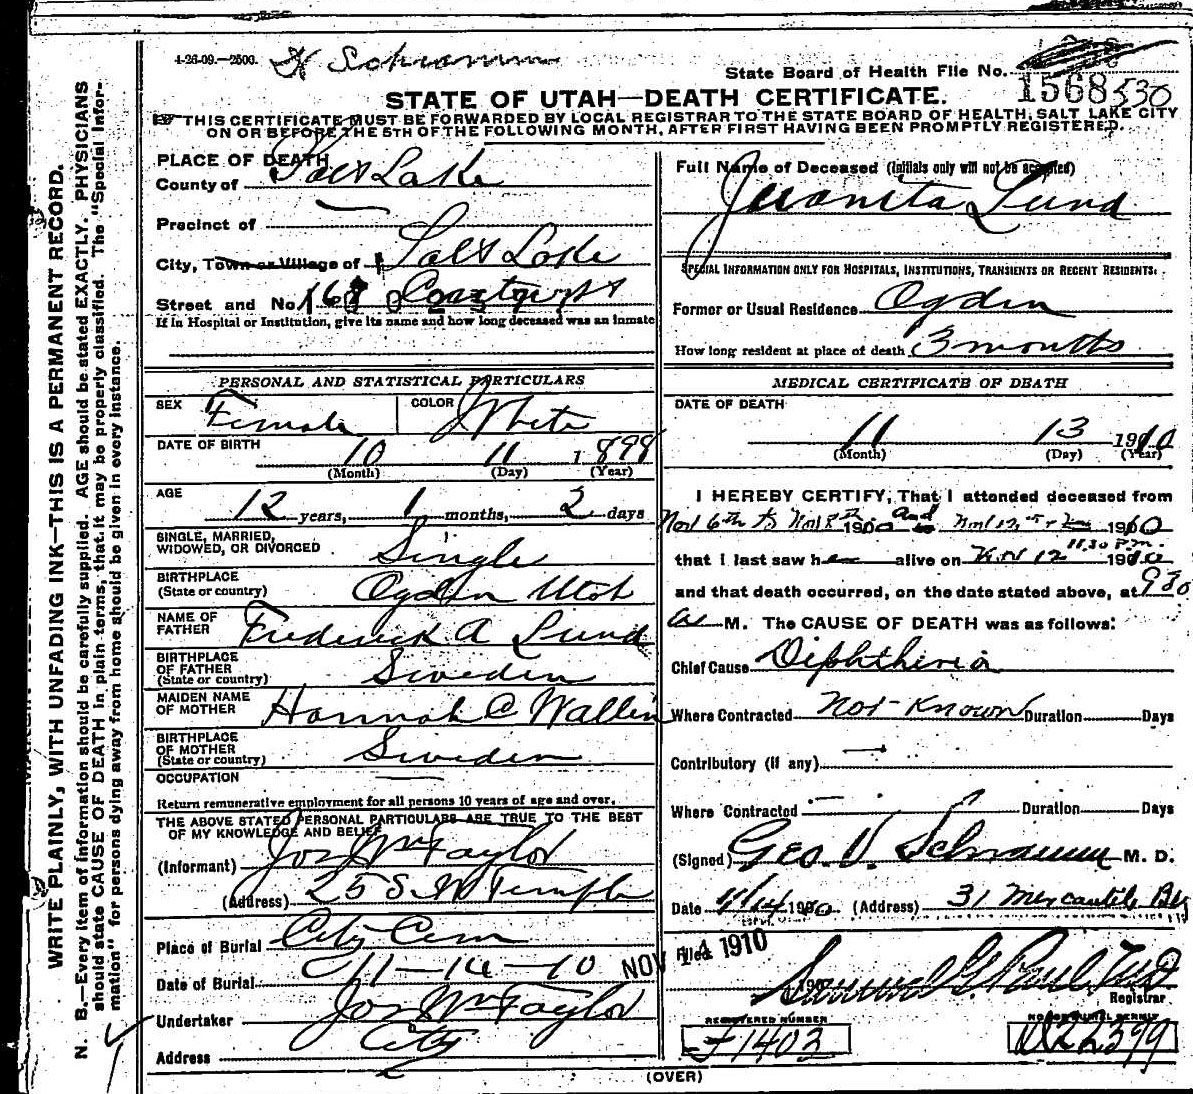 4-26-09.—2500. H Schramm
State Board of Health File No. 1568 530
STATE OF UTAH—DEATH CERTIFICATE.
THIS CERTIFICATE MUST BE FORWARDED BY LOCAL REGISTRAR TO THE STATE BOARD OF HEALTH, SALT LAKE CITY
ON OR BEFORE THE 5TH OF THE FOLLOWING MONTH, AFTER FIRST HAVING BEEN PROMPTLY REGISTERED.
PLACE OF DEATH
County of Salt Lake
Precinct of
City, Town or Village of Salt Lake
Street and No. 168
If in Hospital or Institution, give its name and how long deceased was an inmate
PERSONAL AND STATISTICAL PARTICULARS
SEX Female COLOR White
DATE OF BIRTH 10 11 1898
(Month) (Day) (Year)
AGE 12 years, 1 months, 2 days
SINGLE, MARRIED,
WIDOWED, OR DIVORCED Single
BIRTHPLACE
(State or country) Ogden Utah
NAME OF
FATHER Frederick A Lund
BIRTHPLACE
OF FATHER
(State or country) Sweden
MAIDEN NAME
OF MOTHER Hannah C Wallin
BIRTHPLACE
OF MOTHER
(State or country) Sweden
OCCUPATION
Return remunerative employment for all persons 10 years of age and over.
THE ABOVE STATED PERSONAL PARTICULARS ARE TRUE TO THE BEST
OF MY KNOWLEDGE AND BELIEF
(Informant) Jos Wm Taylor
(Address) 25 S. W Temple
Place of Burial City Cem
Date of Burial 11-14-10
Undertaker Jos Wm Taylor
Address City
Full Name of Deceased (Initials only will not be accepted)
Juanita Lund
SPECIAL INFORMATION ONLY FOR HOSPITALS, INSTITUTIONS, TRANSIENTS OR RECENT RESIDENTS.
Former or Usual Residence Ogden
How long resident at place of death 3 months
MEDICAL CERTIFICATE OF DEATH
DATE OF DEATH
11 13 1910
(Month) (Day) (Year)
I HEREBY CERTIFY, That I attended deceased from
Nov 6th to Nov 8th 1910 and Nov 12 1910
11.30 P.m.
that I last saw her alive on Nov 12 1910
and that death occurred, on the date stated above, at 930
a M. The CAUSE OF DEATH was as follows:
Chief Cause Diphtheria
Where Contracted Not Known Duration Days
Contributory (if any)
Where Contracted Duration Days
(Signed) Geo. V. Schramm M. D.
Date 11/14 1910 (Address) 31 Mercantile Blg
Filed NOV 14 1910
Samuel G. Paul
Registrar
REGISTERED NUMBER
F1403
NO. OF BURIAL PERMIT
D22399
(OVER)
WRITE PLAINLY, WITH UNFADING INK—THIS IS A PERMANENT RECORD.
N. B.—Every item of information should be carefully supplied. AGE should be stated EXACTLY. PHYSICIANS
should state CAUSE OF DEATH in plain terms, that it may be properly classified. The "Special Infor-
mation" for persons dying away from home should be given in every instance.